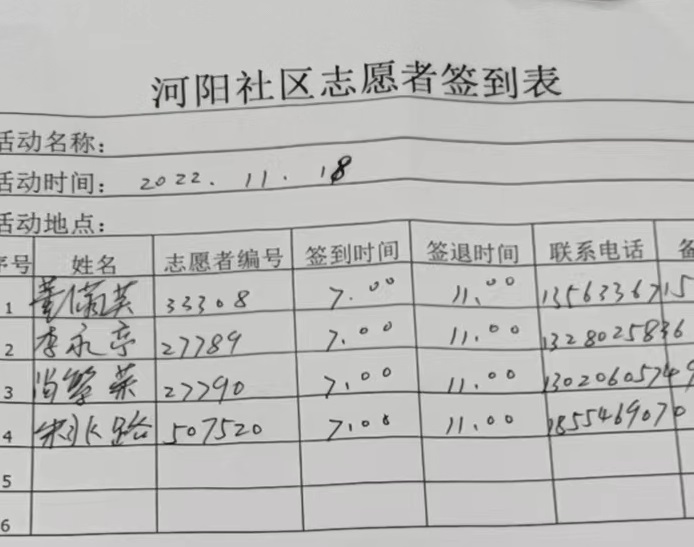 河阳社区志愿者签到表
活动名称：
活动时间： 2022.11.18
活动地点：
序号 姓名 志愿者编号 签到时间 签退时间 联系电话 备
1 33308 7.00 11.00 1356336715
2 李永亭 27789 7.00 11.00 1328025836
3 27790 7.00 11.00 13020605749
4 507520 7.00 11.00 1855469070
5
6